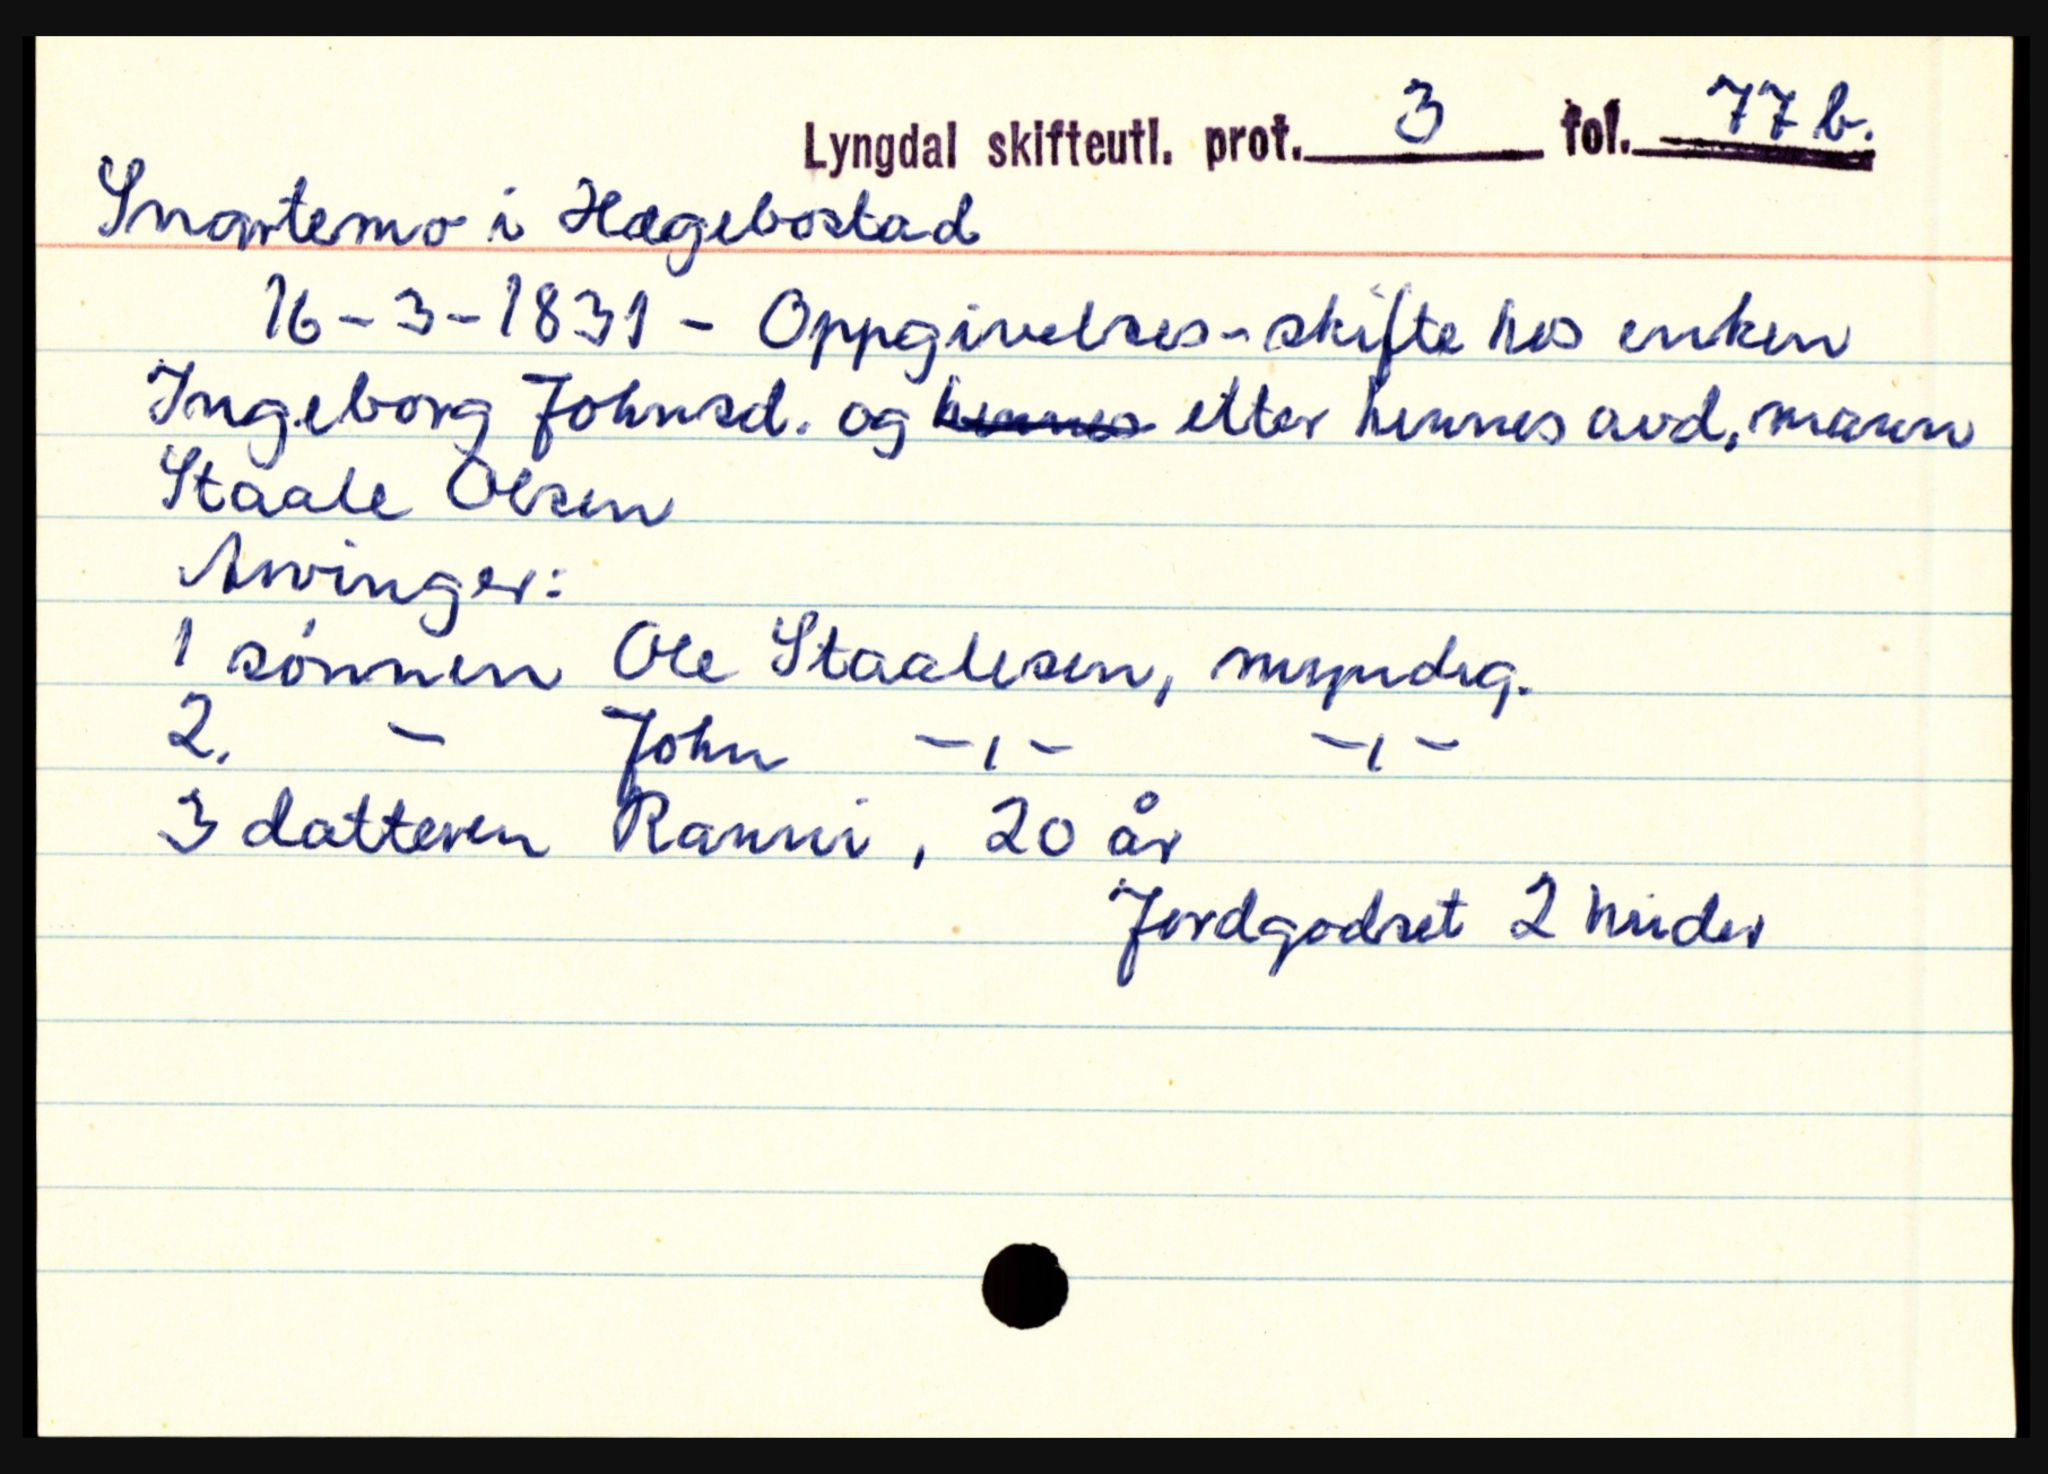 Lyngdal skifteutl. prot. 3 fol. 77 b.
Snartemo i Hægebostad
16-3-1831 - Oppgivelses-skifte hos enken
Ingeborg Johnsd. og hennes etter hennes avd. mann
Staale Olsen
Arvinger:
1 sønnen Ole Staalesen, myndig.
2. - John -,- -,-
3 datteren Ranni, 20 år
Jordgodset 2 huder